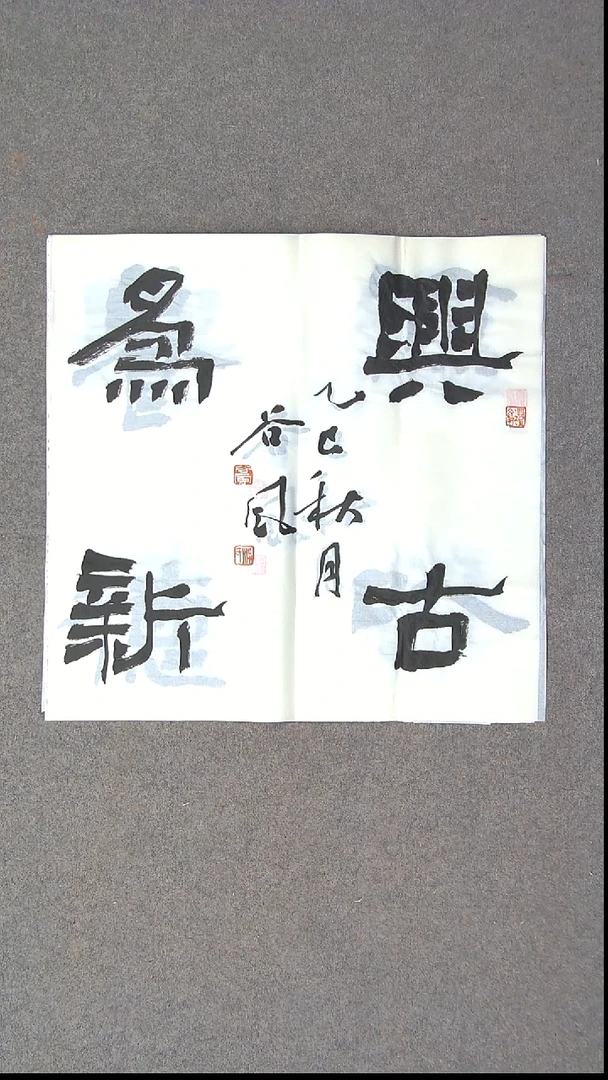 與古
為新
乙巳秋月
谷风